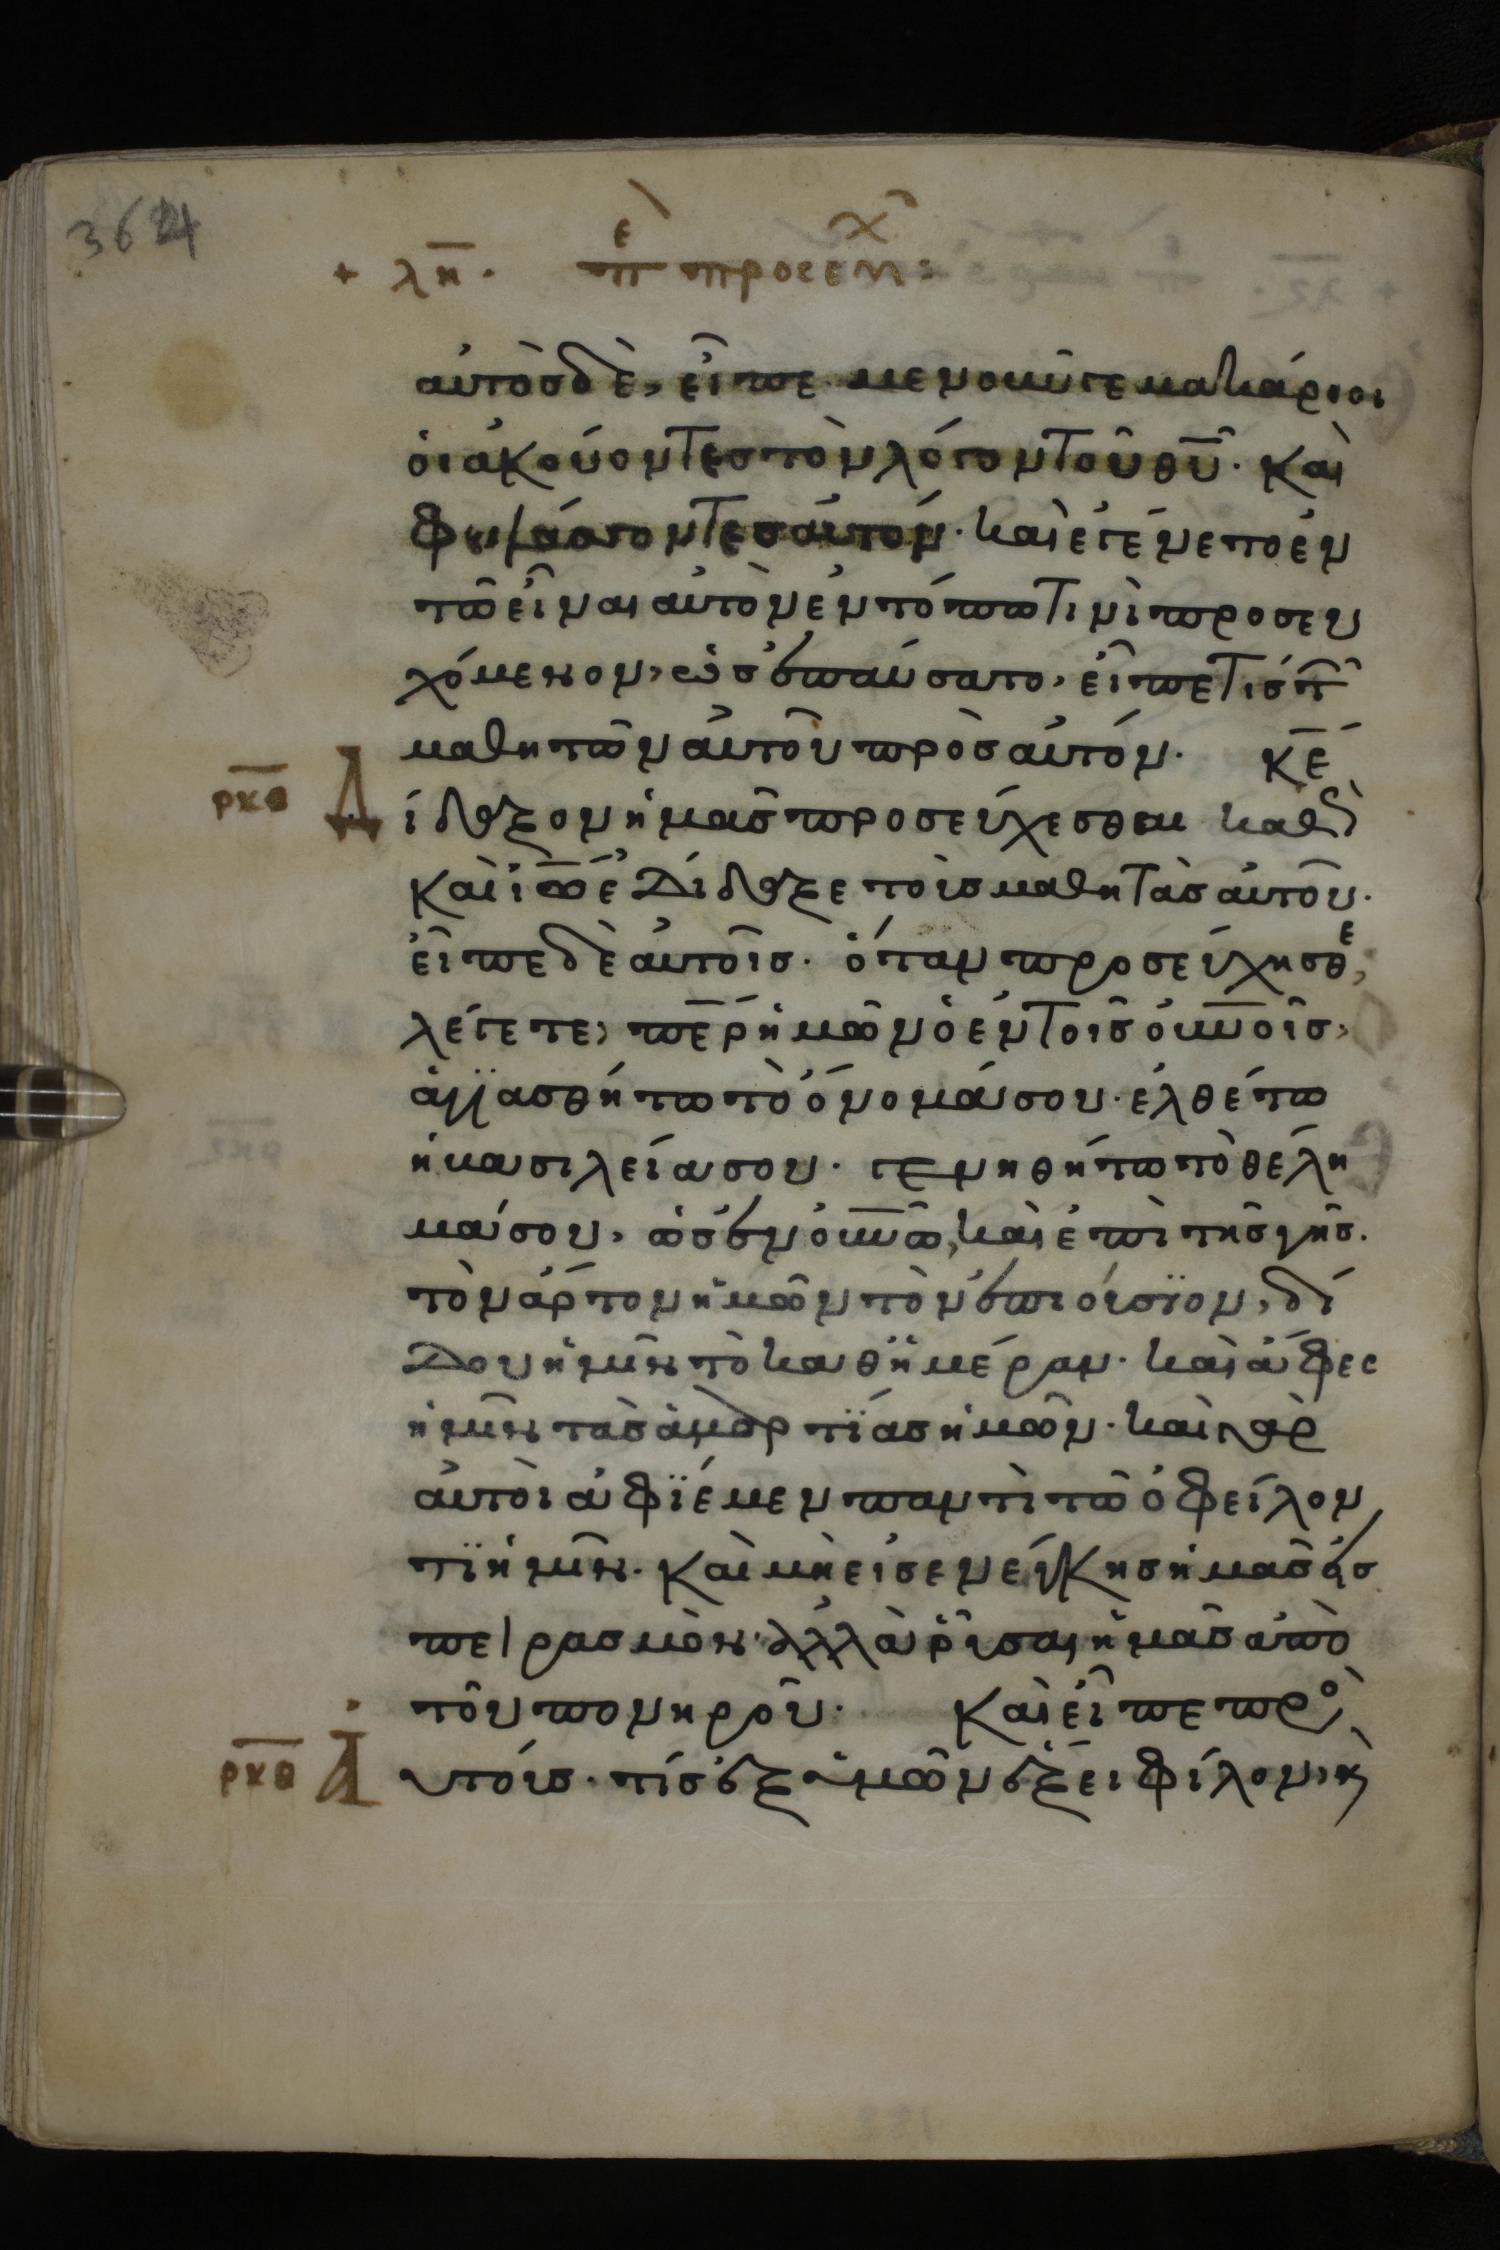 3624
+ λη. πε προσευχ:
αὐτὸσ δὲ, εἶπε. μενοῦνγε μακάριοι
οἱ ἀκούοντεσ τὸν λόγον τοῦ θῦ. καὶ
φυλάσσοντεσ αὐτόν. καὶ ἐγένετο ἐν
τῶ εἶναι αὐτὸν ἐν τόπω τινὶ προσευ
χόμενον, ὡσ ἐπαύσατο, εἶπε τίσ τ
μαθητῶν αὐτοῦ πρὸσ αὐτόν. κε
ρκθ Δ
ίδαξον ἡμᾶσ προσεύχεσθαι καθ
καὶ ἰω ἐδίδαξε τοὺσ μαθητὰσ αὐτοῦ.
εἶπε δὲ αὐτοῖσ. ὅταν προσεύχησθε,
λέγετε, περ ἡμῶν ὁ ἐν τοῖσ οὐνοῖσ,
ἁγϊασθήτω τὸ ὄνομά σου. ἐλθέτω
ἡ βασιλεία σου. γενηθήτω τὸ θέλη
μά σου, ὡσ ἐν οὐνω, καὶ ἐπὶ τῆσ γῆσ.
τὸν ἄρτον ἡμῶν τὸν ἐπιούσϊον, δί
δου ἡμῖν τὸ καθ ἡμέραν. καὶ ἄφεσ
ἡμῖν τὰσ ἁμαρτΐασ ἡμῶν. καὶ γὰρ
αὐτοὶ ἀφΐέμεν παντὶ τῶ ὀφείλον
τϊ ἡμῖν. καὶ μὴ εἰσενείγκησ ἡμᾶσ εἰσ
πειρασμὸν. ἀλλὰ ῥῦσαι ἡμᾶσ ἀπὸ
τοῦ πονηροῦ. καὶ εἶπε πρὸ
ρκθ Α
υτούσ. τίσ ἐξ ὑμῶν ἕξει φίλον, κ